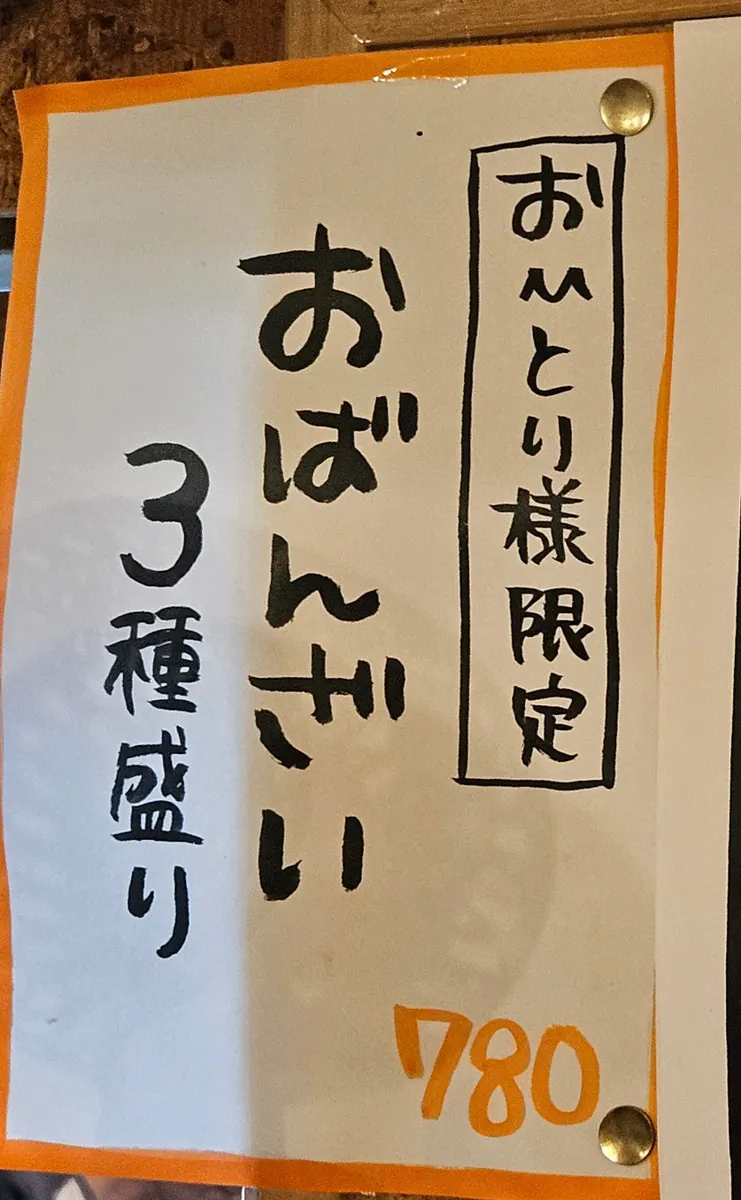 おひとり様限定
おばんざい
3種盛り
780